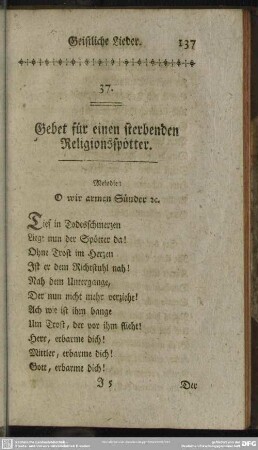 Geistliche Lieder. 137
37.
Gebet für einen sterbenden
Religionsspötter.
Melodie:
O wir armen Sünder ꝛc.
Tief in Todesschmerzen
Liegt nun der Spötter da!
Ohne Trost im Herzen
Ist er dem Richtstuhl nah!
Nah dem Untergange,
Der nun nicht mehr verzieht!
Ach wie ist ihm bange
Um Trost, der vor ihm flieht!
Herr, erbarme dich!
Mittler, erbarme dich!
Gott, erbarme dich!
J 5 Der
DFG